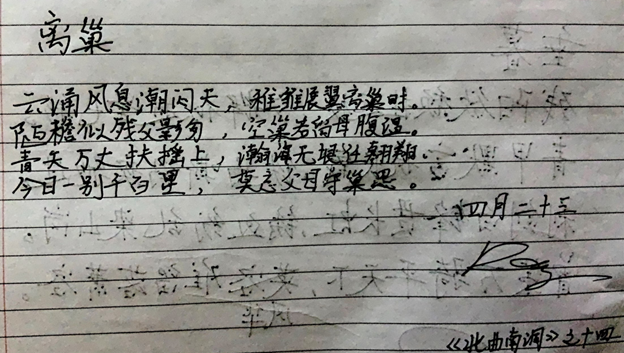 离巢
云涌风息潮闪天，稚雏展翼离巢时。
陋檐似残父影匆，空巢若留母腹温。
青天万丈扶摇上，瀚海无垠任翱翔。
今日一别千百里，莫忘父母守巢思。
四月二十三
《北曲南洞》之十四